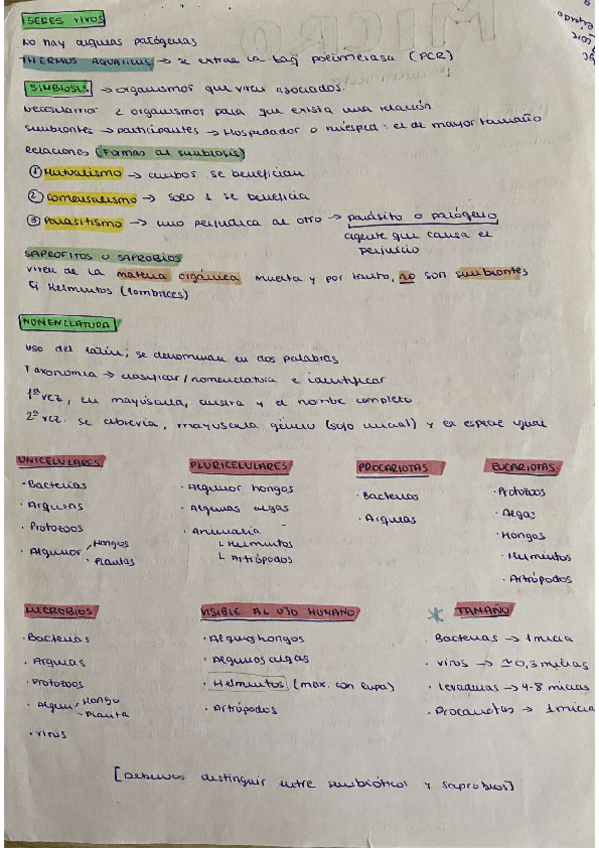 SERES VIVOS
No hay arqueas patógenas
THERMUS AQUATICUS → se extrae la taq polimerasa (PCR)
SIMBIOSIS → organismos que viven asociados.
Necesitamos 2 organismos para que exista una relación
Simbiontes → participantes → Hospedador o huésped: el de mayor tamaño
Relaciones (Formas de simbiosis)
① Mutualismo → ambos se benefician
② Comensalismo → solo 1 se beneficia
③ Parasitismo → uno perjudica al otro → parásito o patógeno
agente que causa el
perjuicio
SAPROFITOS O SAPROBIOS
viven de la materia orgánica muerta y por tanto, no son simbiontes
Ej Helmintos (lombrices)
NOMENCLATURA
Uso del latín; se denominan en dos palabras
Taxonomía → clasificar/nomenclatura e identificar
1ª vez, en mayúscula, cursiva y el nombre completo
2ª vez. se abrevia, mayuscula género (solo inicial) y la especie igual
UNICELULARES
· Bacterias
· Arqueas
· Protozoos
· Algunos Hongos
- Plantas
PLURICELULARES
· Algunos hongos
· Algunas algas
· Animalia
└ Helmintos
└ Artrópodos
PROCARIOTAS
· Bacterias
· Arqueas
EUCARIOTAS
· Protozoos
· Algas
· Hongos
· Helmintos
· Artrópodos
MICROBIOS
· Bacterias
· Arqueas
· Protozoos
· Algún Hongo
- Planta
· Virus
VISIBLE AL OJO HUMANO
· Algunos hongos
· Algunos algas
· Helmintos (max. con lupa)
· Artrópodos
* TAMAÑO
· Bacterias → 1 micra
· Virus → ≃ 0,3 micras
· Levaduras → 4-8 micras
· Procariotas → 1 micra
[Debemos distinguir entre simbióticos y saprobios]